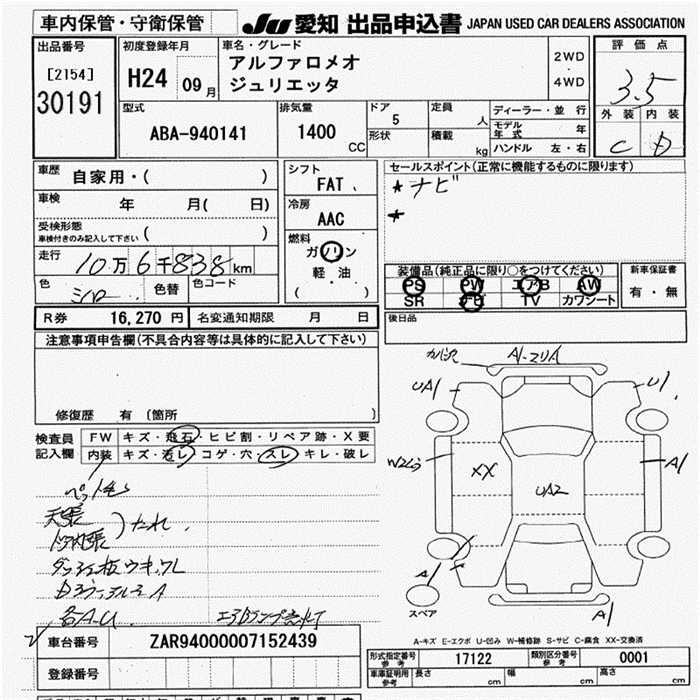 車内保管・守衛保管 JU 愛知 出品申込書 JAPAN USED CAR DEALERS ASSOCIATION
出品番号 初度登録年月 車名・グレード 評価点
[2154] H24 09月 アルファロメオ 2WD
30191 ジュリエッタ ・4WD 3.5
型式 排気量 ドア 定員 ディーラー・並行 外装 内装
ABA-940141 1400 CC 5 人 モデル年式 年 C D
形状 積載 kg ハンドル 左・右
車歴 自家用・( ) シフト セールスポイント(正常に機能するものに限ります)
FAT ★ナビ
車検 年 月( 日) 冷房 ★
AAC
受検形態 ( )
車検付きのみ記入して下さい
燃料
ガソリン
走行 10万6千838km 軽・油
( )
装備品(純正品に限り○をつけてください) 新車保証書
色 シロ 色替 色コード PS PW エアB AW 有・無
SR ナビ TV カワシート
R券 16,270円 名変通知期限 月 日 後日品
注意事項申告欄(不具合内容等は具体的に記入して下さい)
A1-2リA
UA1 U1
修復歴 有 (箇所 )
検査員 FW キズ・飛石・ヒビ割・リペア跡・X要
記入欄 内装 キズ・汚レ・コゲ・穴・スレ・キレ・破レ
XX A1
UA2
天張
内張 )たれ
A1
各A-U
スペア A1
A-キズ E-エクボ U-凹み W-補修跡 S-サビ C-腐食 XX-交換済
車台番号 ZAR94000007152439
形式指定番号 参考 17122 類別区分番号 参考 0001
登録番号
車庫証明用 参考 長さ cm 幅 cm 高さ cm